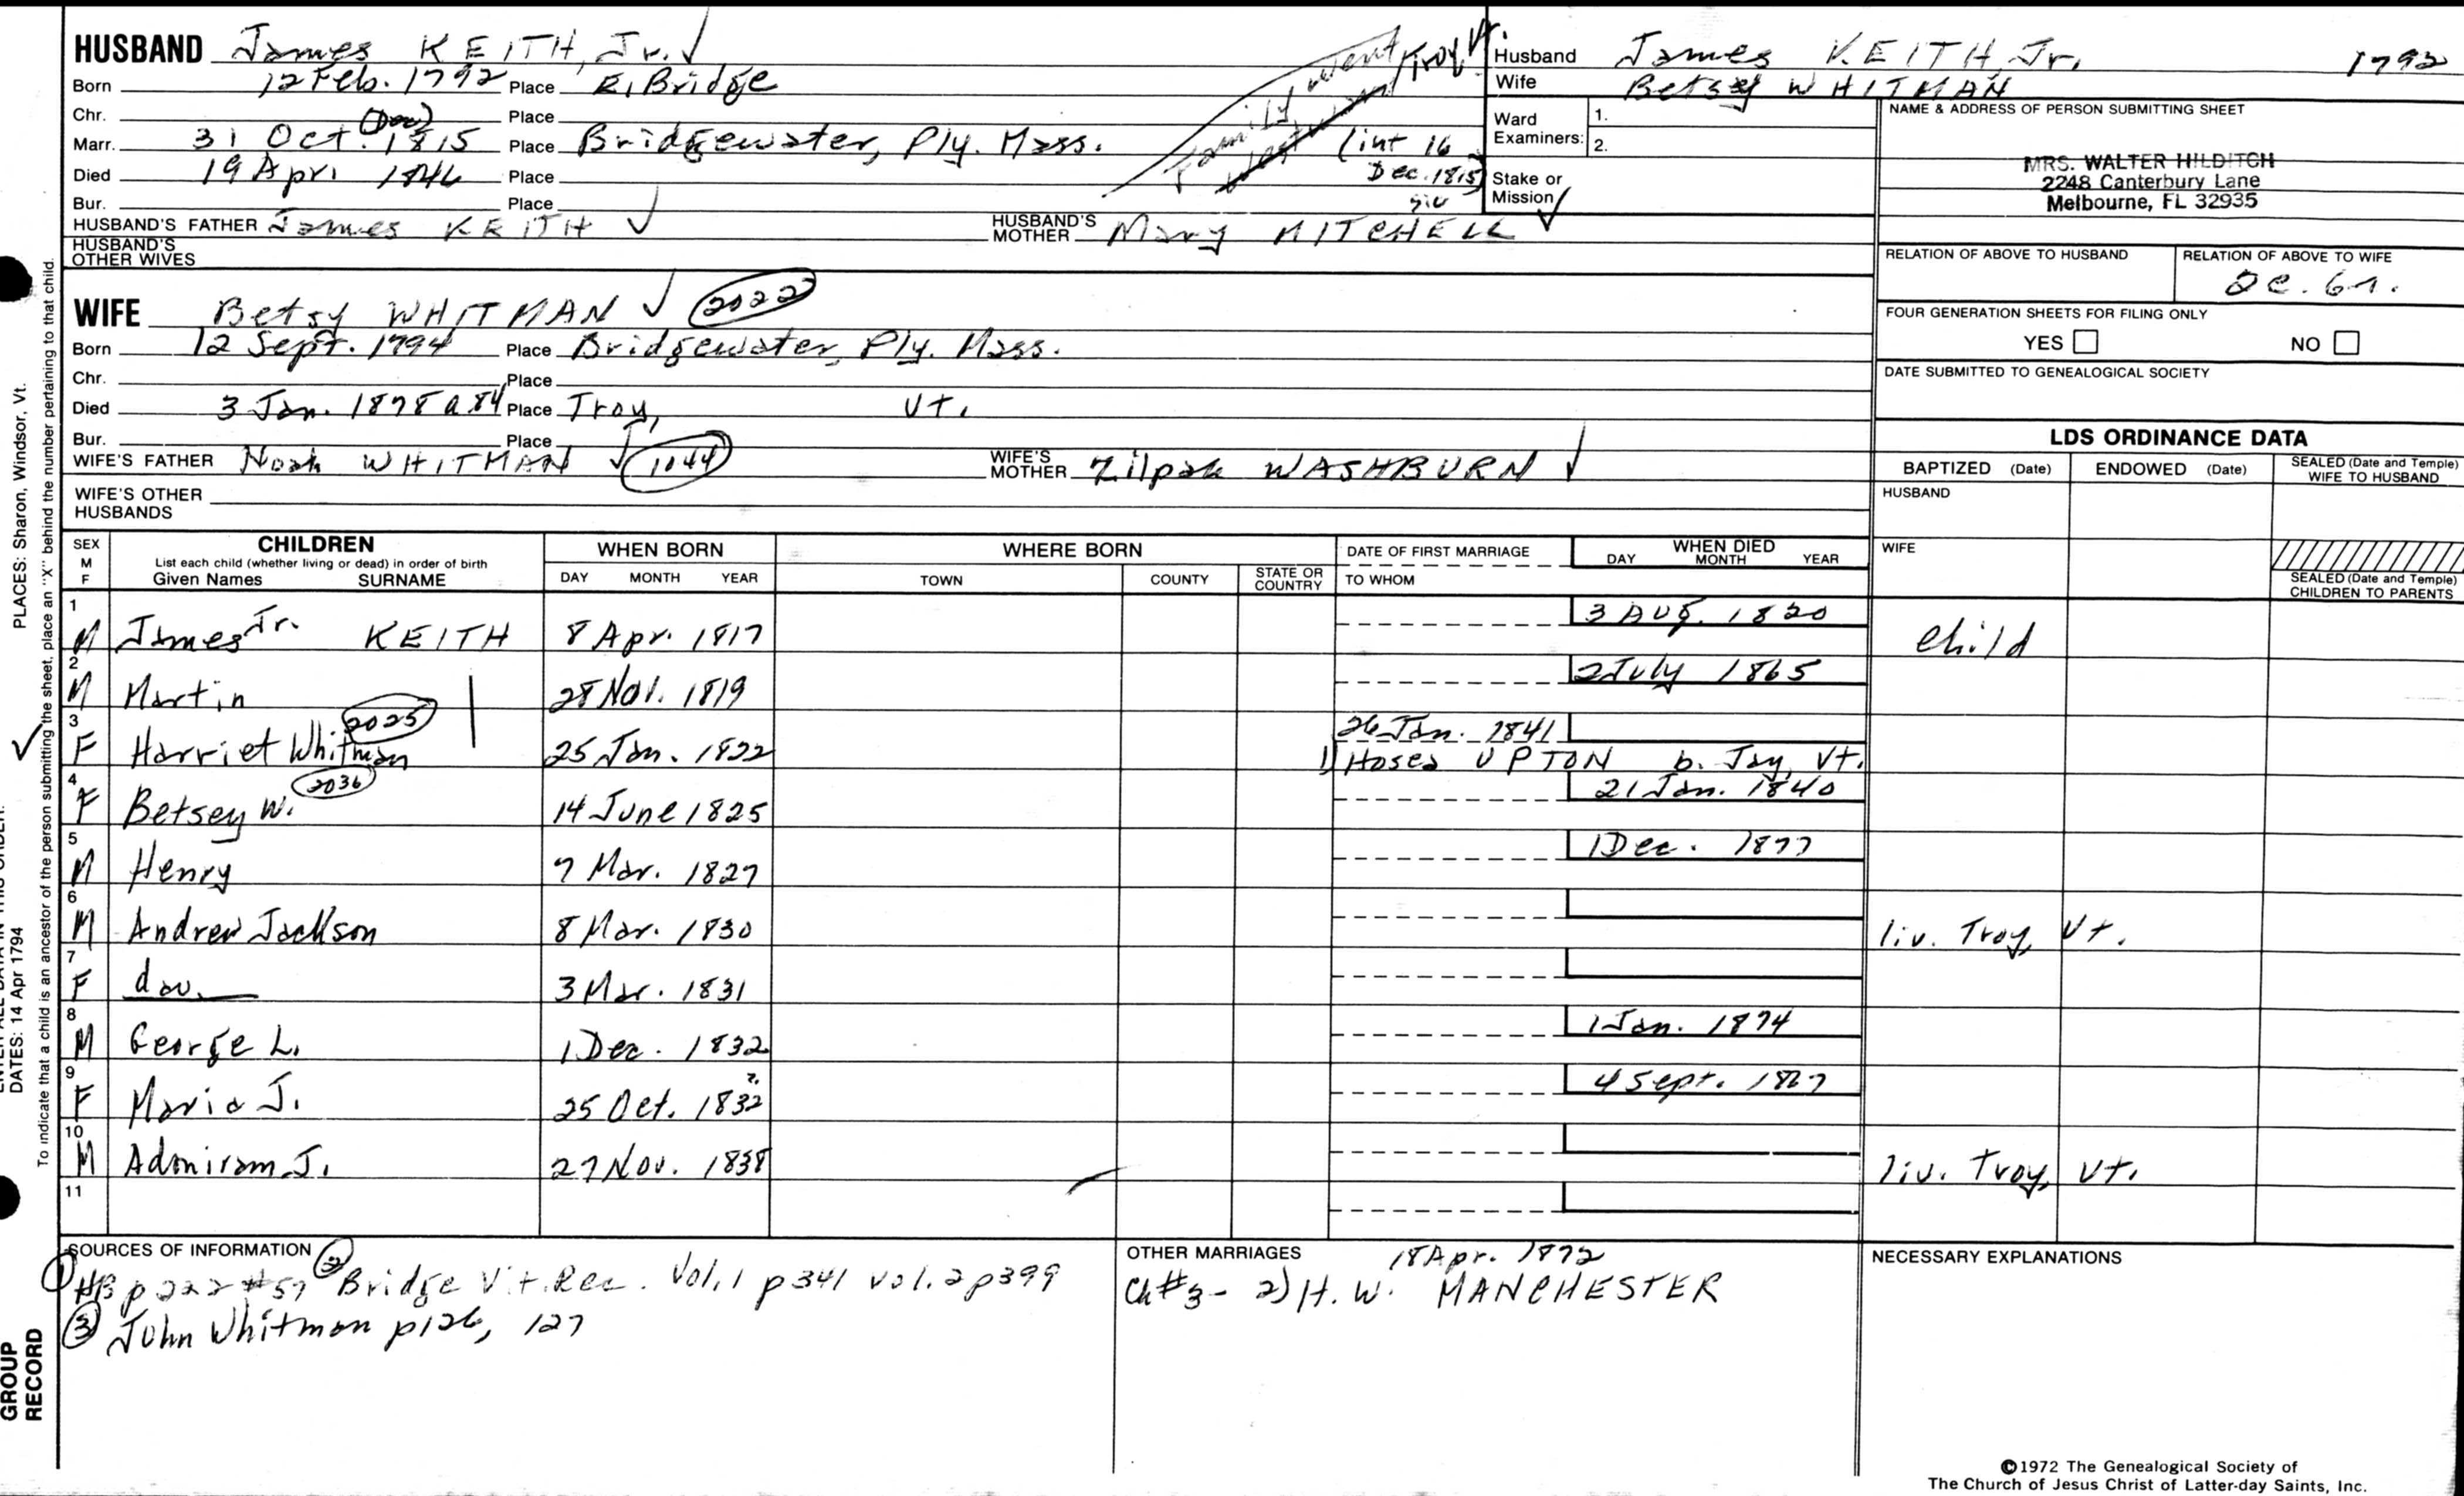 HUSBAND James KEITH, Jr. ✓
Born 12 Feb. 1792 Place E. Bridge
Chr. Place
(Dec)
Marr. 31 Oct. 1815 Place Bridgewater, Ply. Mass. (int 16 Dec. 1815)
Died 19 Apr. 1846 Place
Bur. Place
family went Troy Vt.
HUSBAND'S FATHER James KEITH ✓ HUSBAND'S MOTHER Mary MITCHELL ✓
HUSBAND'S OTHER WIVES
WIFE Betsy WHITMAN ✓ 2022
Born 12 Sept. 1794 Place Bridgewater, Ply. Mass.
Chr. Place
Died 3 Jan. 1878 a 84 Place Troy, Vt.
Bur. Place
WIFE'S FATHER Noah WHITMAN ✓ 1044 WIFE'S MOTHER Zilpah WASHBURN ✓
WIFE'S OTHER HUSBANDS
Husband James KEITH, Jr. 1792
Wife Betsey WHITMAN
Ward Examiners: 1.
2.
Stake or Mission
NAME & ADDRESS OF PERSON SUBMITTING SHEET
MRS. WALTER HILDITCH
2248 Canterbury Lane
Melbourne, FL 32935
RELATION OF ABOVE TO HUSBAND RELATION OF ABOVE TO WIFE
FOUR GENERATION SHEETS FOR FILING ONLY
YES NO
DATE SUBMITTED TO GENEALOGICAL SOCIETY
LDS ORDINANCE DATA
BAPTIZED (Date) ENDOWED (Date) SEALED (Date and Temple) WIFE TO HUSBAND
HUSBAND
WIFE
SEALED (Date and Temple) CHILDREN TO PARENTS
SEX M F CHILDREN WHEN BORN WHERE BORN DATE OF FIRST MARRIAGE WHEN DIED
List each child (whether living or dead) in order of birth
Given Names SURNAME DAY MONTH YEAR TOWN COUNTY STATE OR COUNTRY TO WHOM DAY MONTH YEAR
1 M James Jr. KEITH 8 Apr. 1817 3 Aug. 1820 child
2 M Martin 28 Nov. 1819 2 July 1865
3 F Harriet Whitman 2025 25 Jan. 1822 26 Jan. 1841
1) Hosea UPTON b. Jay, Vt.
4 F Betsey W. 2036 14 June 1825 21 Jan. 1840
5 M Henry 7 Mar. 1827 1 Dec. 1877
6 M Andrew Jackson 8 Mar. 1830 liv. Troy, Vt.
7 F dau. 3 Mar. 1831
8 M George L. 1 Dec. 1832 1 Jan. 1874
9 F Maria J. 25 Oct. 1832 ? 4 Sept.
10 M Adoniram J. 27 Nov. 1838 liv. Troy, Vt.
11
SOURCES OF INFORMATION
① HB p 222 #57 ② Bridge Vit. Rec. Vol. 1 p 341 vol. 2 p 399
③ John Whitman p 126, 127
OTHER MARRIAGES 18 Apr. 1872
Ch #3 - 2) H. W. MANCHESTER
NECESSARY EXPLANATIONS
©1972 The Genealogical Society of
The Church of Jesus Christ of Latter-day Saints, Inc.
PLACES: Sharon, Windsor, Vt.
DATES: 14 Apr 1794
To indicate that a child is an ancestor of the person submitting the sheet, place an "X" behind the number pertaining to that child.
GROUP
RECORD